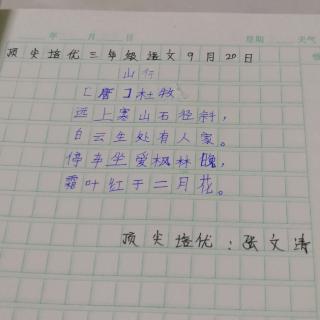 年 月 日 星期 天气
顶尖培优三年级语文9月20日
山行
［唐］杜牧
远上寒山石径斜，
白云生处有人家。
停车坐爱枫林晚，
霜叶红于二月花。
顶尖培优：张文清